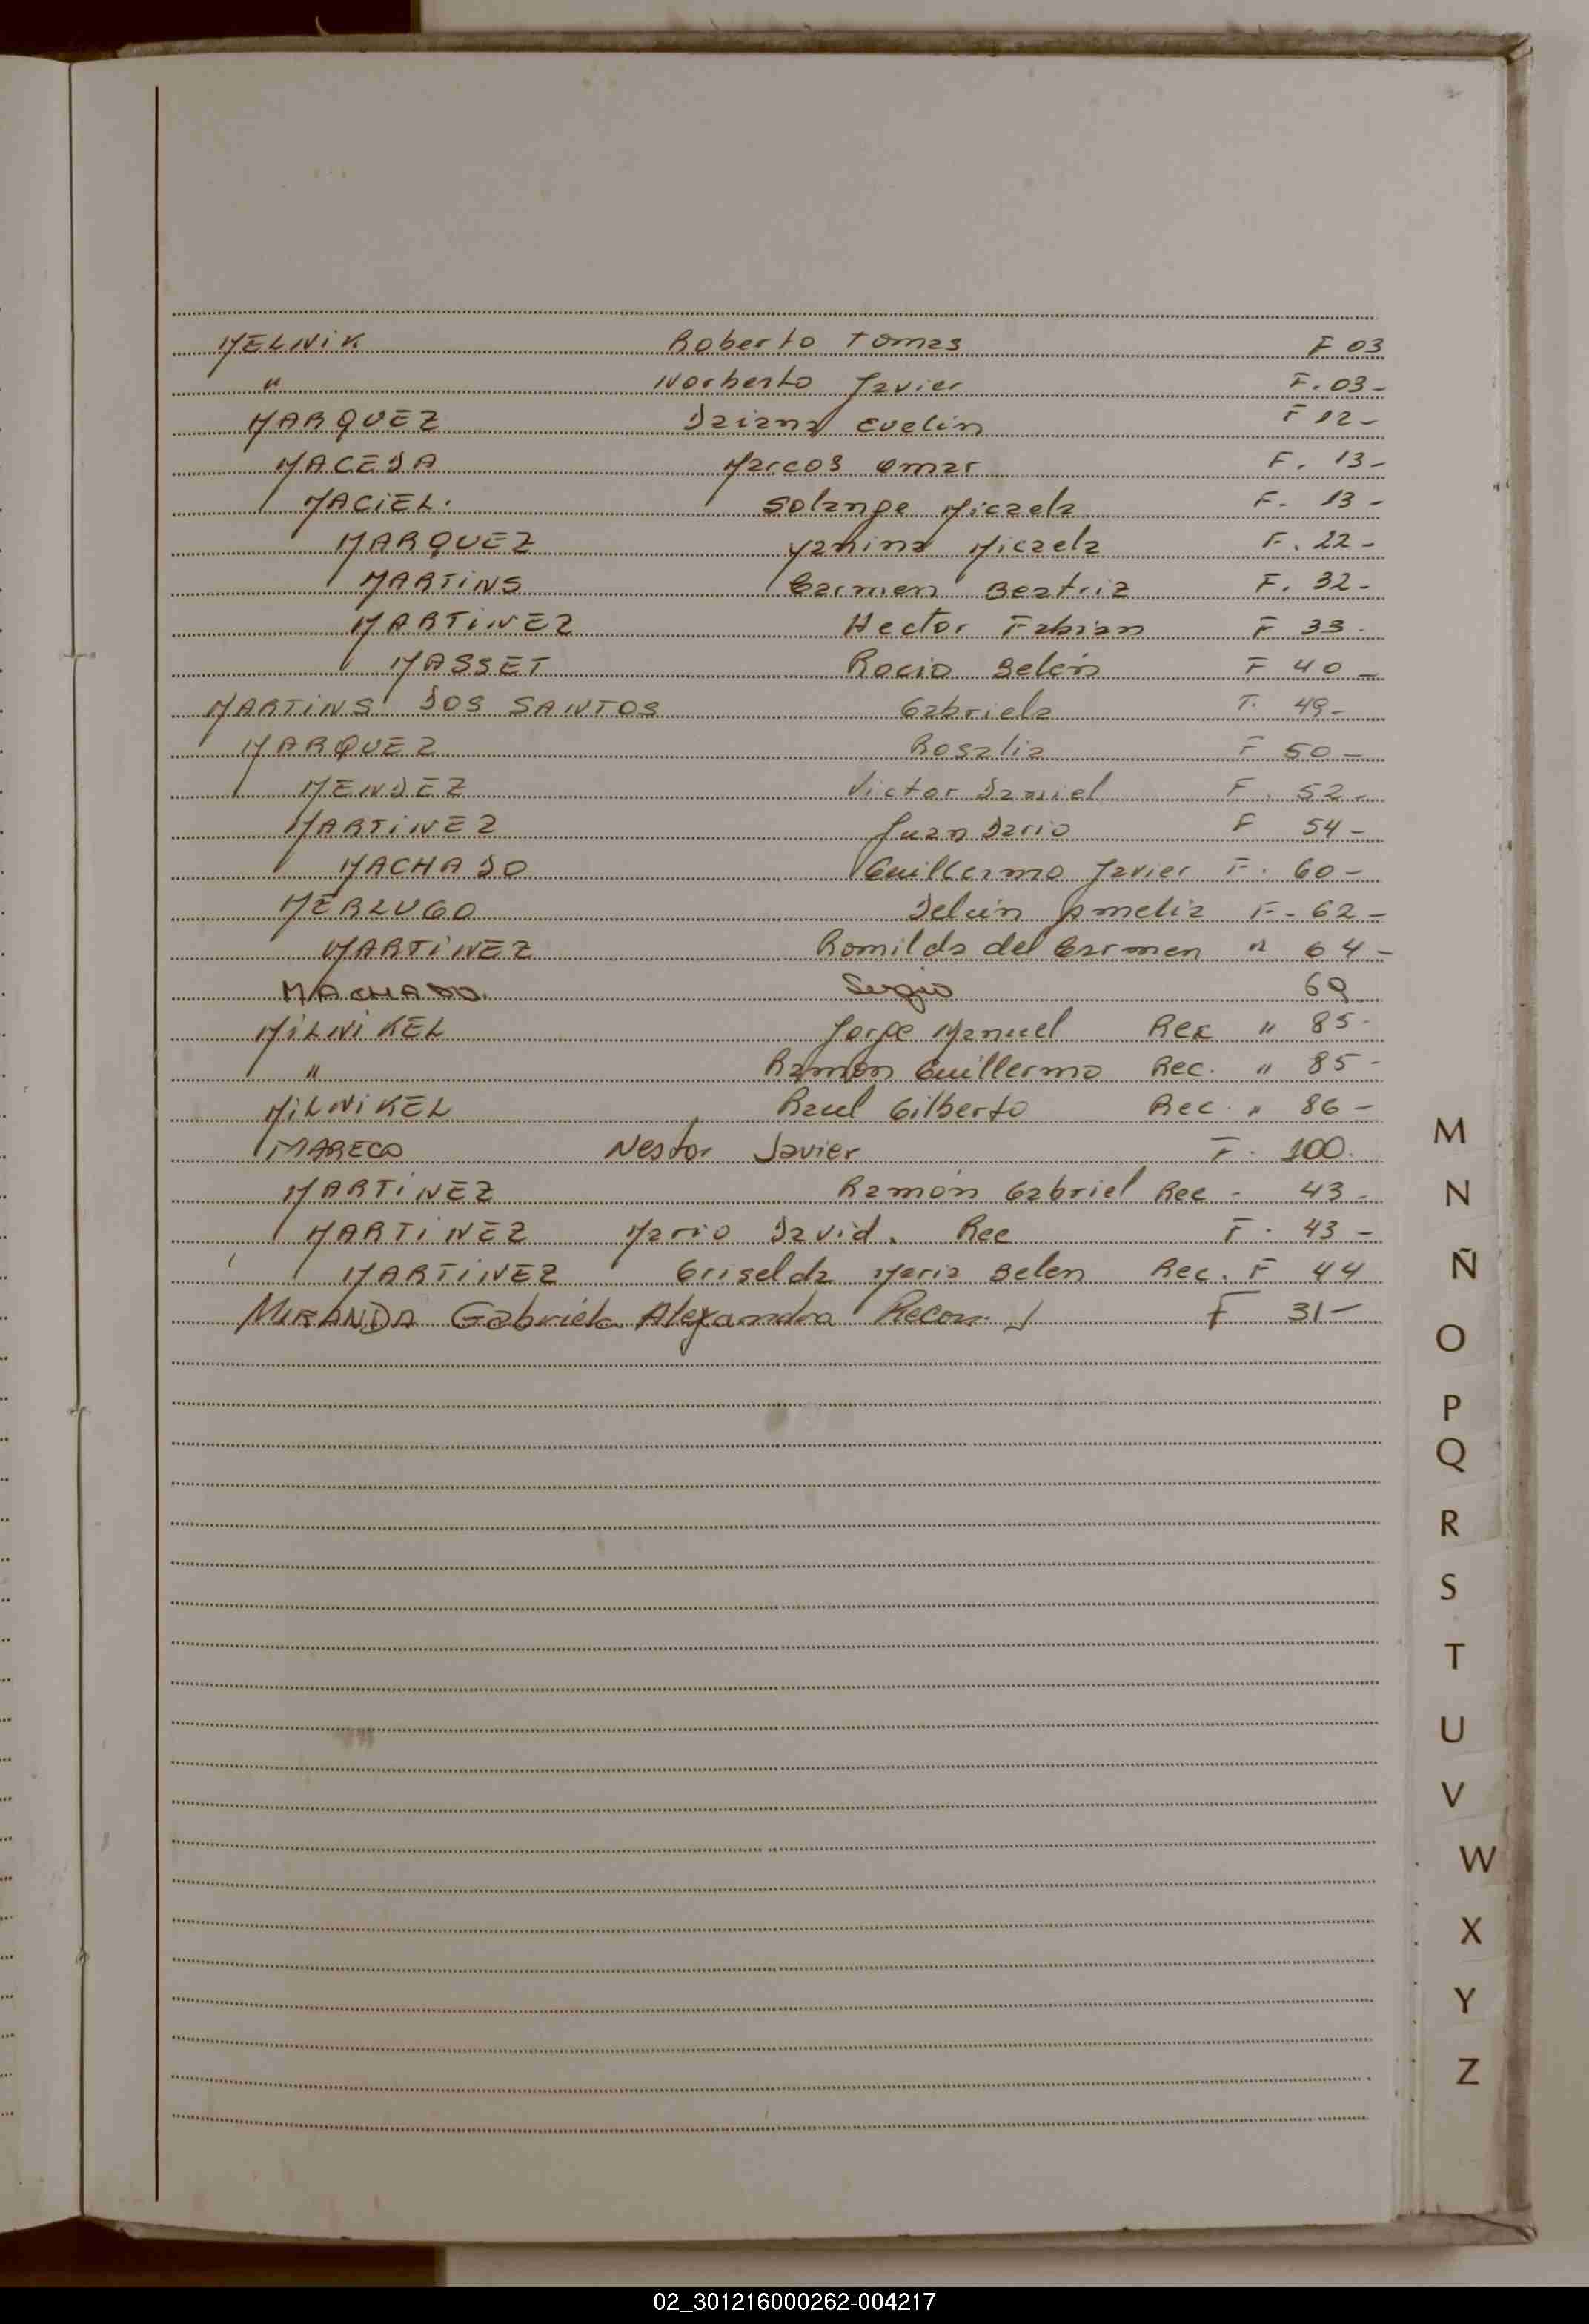 MELNIK Roberto Tomas F 03
" Norberto Javier F. 03-
MARQUEZ Daiana Evelin F 12-
MACEDA Marcos Omar F. 13-
MACIEL. Solange Micaela F. 13-
MARQUEZ Yanina Micaela F. 22-
MARTINS Carmen Beatriz F. 32-
MARTINEZ Hector Fabian F 33.
MASSET Rocio Belén F 40-
MARTINS DOS SANTOS Gabriela F. 49-
MARQUEZ Rosalia F 50-
MENDEZ Victor Daniel F. 52-
MARTINEZ Juan Dario F 54-
MACHADO Guillermo Javier F. 60-
MERLUGO Amelia F- 62-
MARTINEZ Romilda del Carmen " 64-
MACHADO. Sergio 69
MILNIKEL Jorge Manuel Rec " 85-
" Ramon Guillermo Rec. " 85-
MILNIKEL Raul Gilberto Rec. " 86-
MARECO Nestor Javier F. 100.
MARTINEZ Ramón Gabriel Rec - 43-
MARTINEZ Mario David. Rec F. 43-
MARTINEZ Griselda Maria Belen Rec. F 44
MIRANDA Gabriela Alejandra Recon. F 31-
M
N
Ñ
O
P
Q
R
S
T
U
V
W
X
Y
Z
02_301216000262-004217